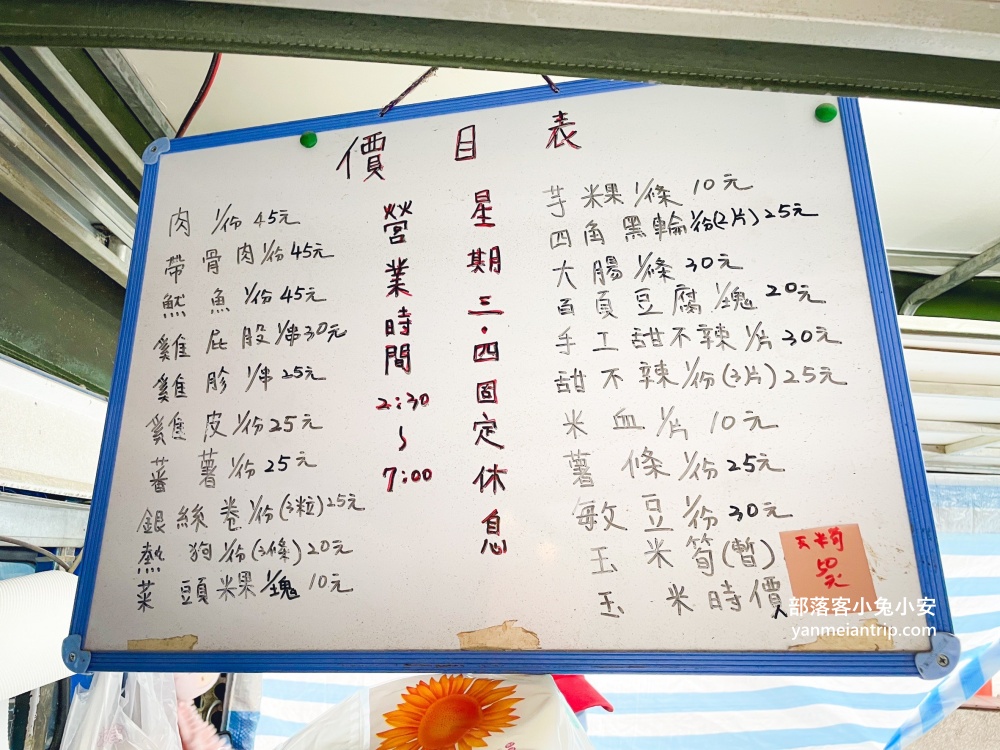 價目表
肉 1/份 45元
帶骨肉 1/份 45元
魷魚 1/份 45元
雞屁股 1/串 30元
雞胗 1/串 25元
雞皮 1/份 25元
蕃薯 1/份 25元
銀絲卷 1/份(3粒) 25元
熱狗 1/份(3條) 20元
菜頭粿 1/塊 10元
營業時間 2:30~7:00
星期三.四固定休息
芋粿 1/條 10元
四角黑輪 1/份(2片) 25元
大腸 1/條 30元
百頁豆腐 1/塊 20元
手工甜不辣 1/片 30元
甜不辣 1/份(3片) 25元
米血 1/片 10元
薯條 1/份 25元
敏豆 1/份 30元
玉米筍(暫)
玉米時價
玉米筍
50
元
部落客小兔小安
yanmeiantrip.com